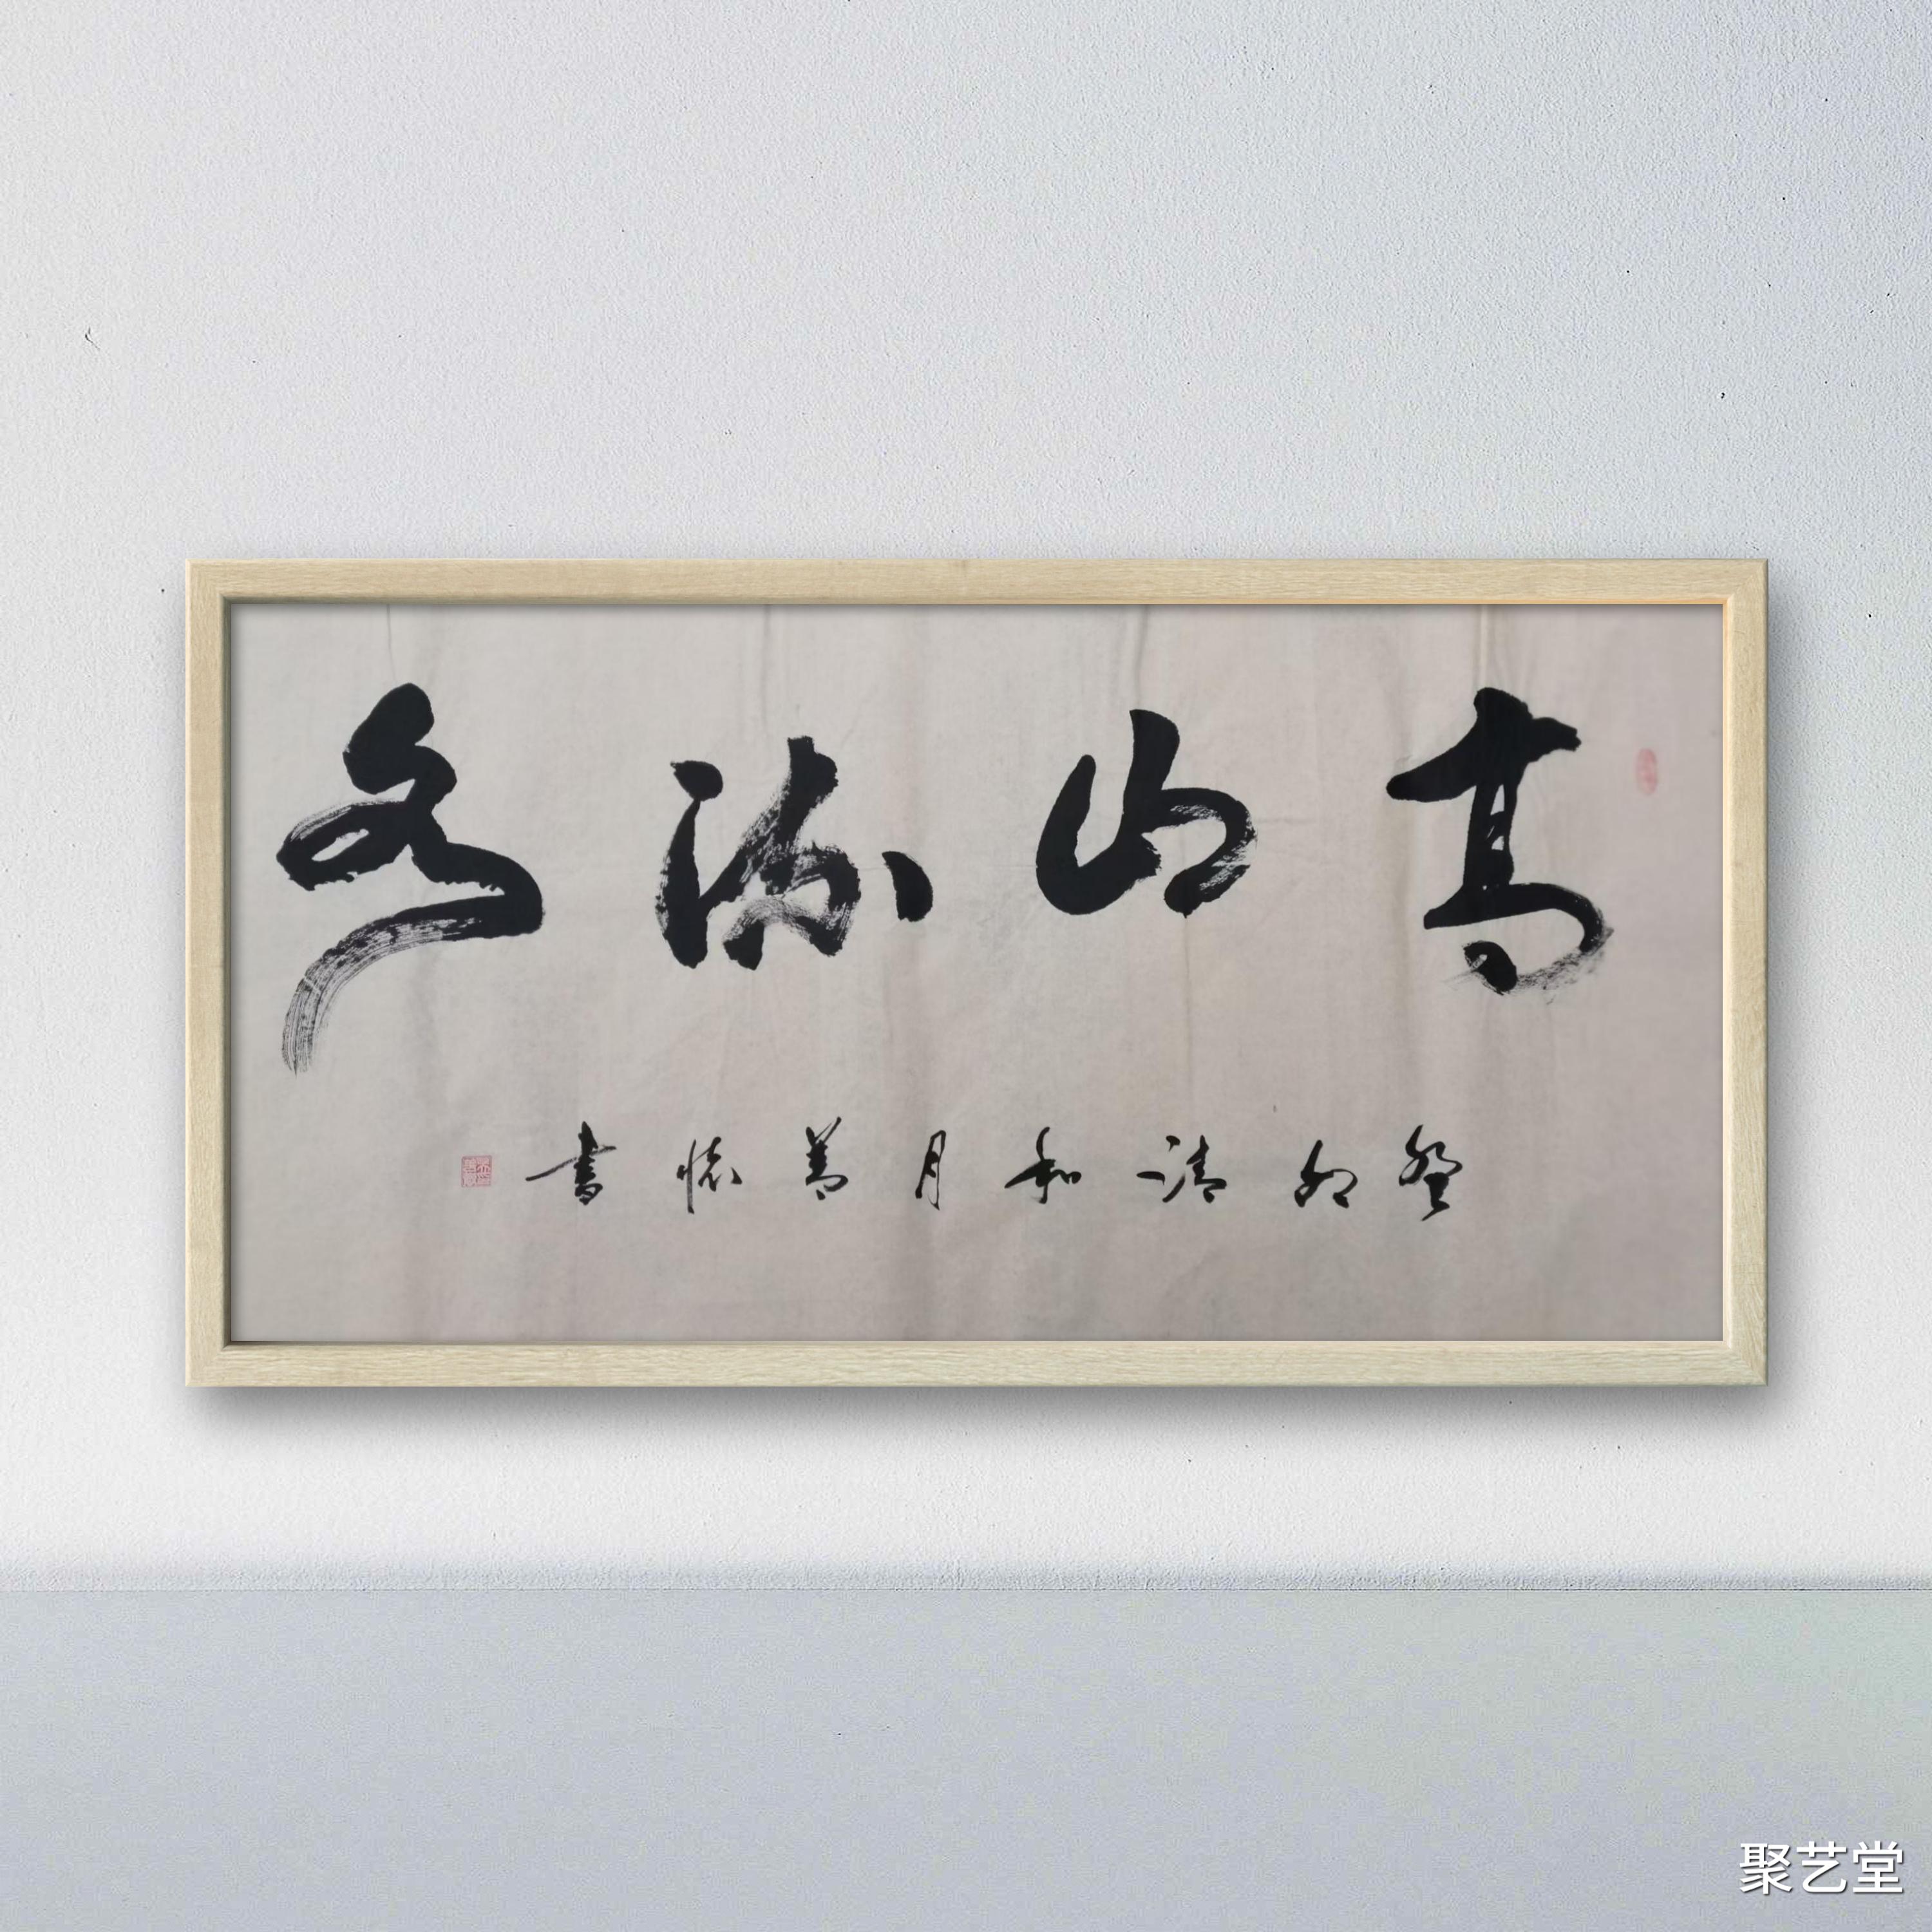 高山流水
癸卯清和月善懷書
聚艺堂